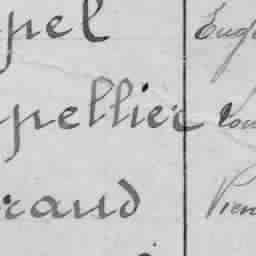 pel Eug
pellier Lou
raud Pier